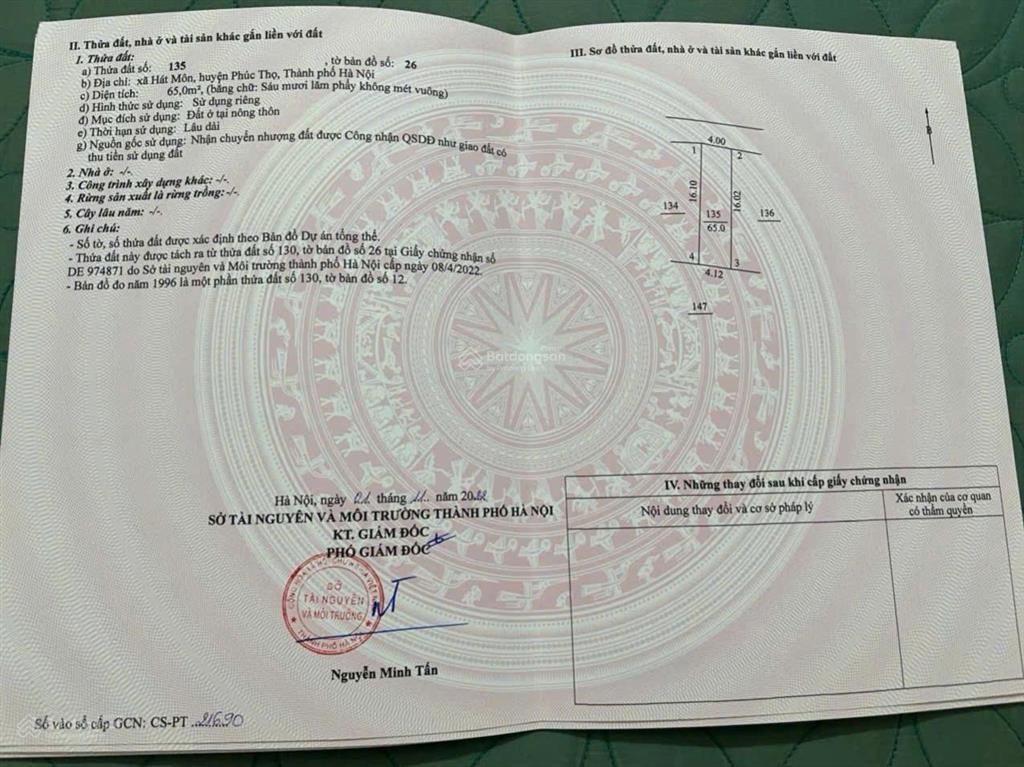 II. Thửa đất, nhà ở và tài sản khác gắn liền với đất
1. Thửa đất:
a) Thửa đất số: 135 , tờ bản đồ số: 26
b) Địa chỉ: xã Hát Môn, huyện Phúc Thọ, Thành phố Hà Nội
c) Diện tích: 65,0m², (bằng chữ: Sáu mươi lăm phẩy không mét vuông)
d) Hình thức sử dụng: Sử dụng riêng
đ) Mục đích sử dụng: Đất ở tại nông thôn
e) Thời hạn sử dụng: Lâu dài
g) Nguồn gốc sử dụng: Nhận chuyển nhượng đất được Công nhận QSDĐ như giao đất có
thu tiền sử dụng đất
2. Nhà ở: -/-.
3. Công trình xây dựng khác: -/-.
4. Rừng sản xuất là rừng trồng: -/-.
5. Cây lâu năm: -/-.
6. Ghi chú:
- Số tờ, số thửa đất được xác định theo Bản đồ Dự án tổng thể.
- Thửa đất này được tách ra từ thửa đất số 130, tờ bản đồ số 26 tại Giấy chứng nhận số
DE 974871 do Sở tài nguyên và Môi trường thành phố Hà Nội cấp ngày 08/4/2022.
- Bản đồ đo năm 1996 là một phần thửa đất số 130, tờ bản đồ số 12.
Hà Nội, ngày tháng 11 năm 2022
SỞ TÀI NGUYÊN VÀ MÔI TRƯỜNG THÀNH PHỐ HÀ NỘI
KT. GIÁM ĐỐC
PHÓ GIÁM ĐỐC
SỞ
TÀI NGUYÊN
VÀ MÔI TRƯỜNG
THÀNH PHỐ HÀ NỘI
Nguyễn Minh Tấn
Số vào sổ cấp GCN: CS-PT 21690
III. Sơ đồ thửa đất, nhà ở và tài sản khác gắn liền với đất
B
4.00
1
2
16.10
16.02
134
135
65.0
136
4
3
4.12
147
Batdongsan
IV. Những thay đổi sau khi cấp giấy chứng nhận
Nội dung thay đổi và cơ sở pháp lý
Xác nhận của cơ quan
có thẩm quyền